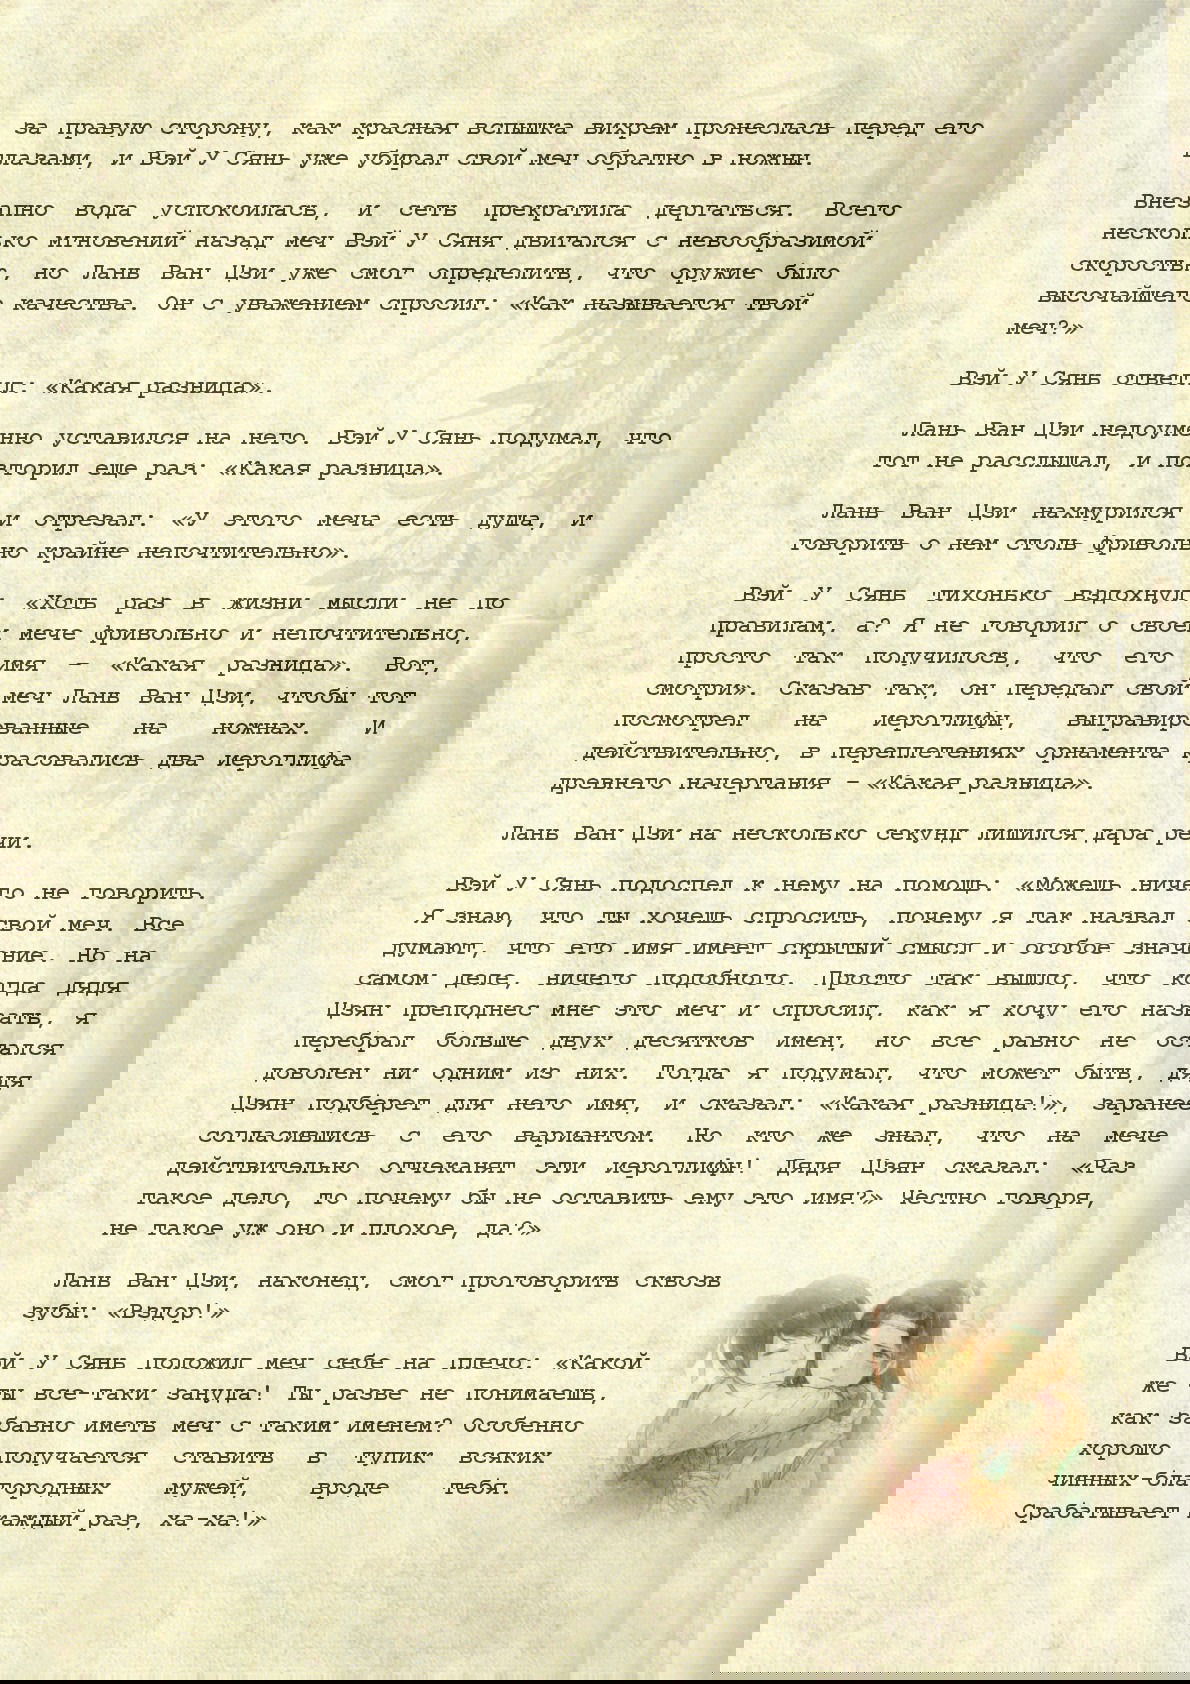 за правую сторону, как красная вспышка вихрем пронеслась перед его
глазами, и Вэй У Сянь уже убирал свой меч обратно в ножны.
Внезапно вода успокоилась, и сеть прекратила дергаться. Всего
несколько мгновений назад меч Вэй У Сяня двигался с невообразимой
скоростью, но Лань Ван Цзи уже смог определить, что оружие было
высочайшего качества. Он с уважением спросил: «Как называется твой
меч?»
Вэй У Сянь ответил: «Какая разница».
Лань Ван Цзи недоуменно уставился на него. Вэй У Сянь подумал, что
тот не расслышал, и повторил еще раз: «Какая разница».
Лань Ван Цзи нахмурился и отрезал: «У этого меча есть душа, и
говорить о нем столь фривольно крайне непочтительно».
Вэй У Сянь тихонько вздохнул: «Хоть раз в жизни мысли не по
правилам, а? Я не говорил о своем мече фривольно и непочтительно,
просто так получилось, что его имя – «Какая разница». Вот,
смотри». Сказав так, он передал свой меч Лань Ван Цзи, чтобы тот
посмотрел на иероглифы, выгравированные на ножнах. И
действительно, в переплетениях орнамента красовались два иероглифа
древнего начертания – «Какая разница».
Лань Ван Цзи на несколько секунд лишился дара речи.
Вэй У Сянь подоспел к нему на помощь: «Можешь ничего не говорить.
Я знаю, что ты хочешь спросить, почему я так назвал свой меч. Все
думают, что его имя имеет скрытый смысл и особое значение. Но на
самом деле, ничего подобного. Просто так вышло, что когда дядя
Цзян преподнес мне это меч и спросил, как я хочу его назвать, я
перебрал больше двух десятков имен, но все равно не остался
доволен ни одним из них. Тогда я подумал, что может быть, дядя
Цзян подберет для него имя, и сказал: «Какая разница!», заранее
согласившись с его вариантом. Но кто же знал, что на мече
действительно отчеканят эти иероглифы! Дядя Цзян сказал: «Раз
такое дело, то почему бы не оставить ему это имя?» Честно говоря,
не такое уж оно и плохое, да?»
Лань Ван Цзи, наконец, смог проговорить сквозь
зубы: «Вздор!»
Вэй У Сянь положил меч себе на плечо: «Какой
же ты все-таки зануда! Ты разве не понимаешь,
как забавно иметь меч с таким именем? Особенно
хорошо получается ставить в тупик всяких
чинных благородных мужей, вроде тебя.
Срабатывает каждый раз, ха-ха!»